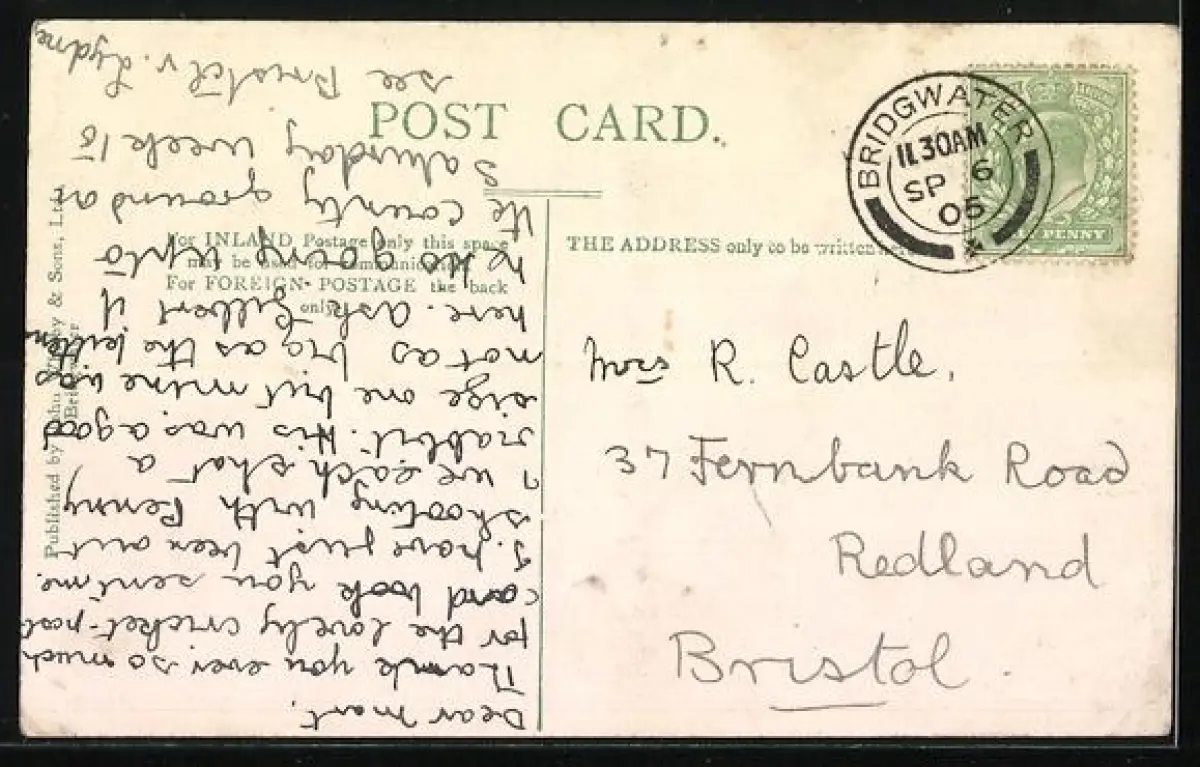 POST CARD.
For INLAND Postage only this space
may be used for communication
For FOREIGN POSTAGE the back
only
THE ADDRESS only to be written here
BRIDGWATER
11.30AM
SP 6
05
PENNY
Mrs R. Castle.
37 Fernbank Road
Redland
Bristol.
Published by John & Sons, Ltd.
Dear
Thank you ever so much
for the lovely cricket-post
card book you sent me.
I have just been out
shooting with Penny
& we each shot a
rabbit. His was a good
size one but mine was
not as big as the kitten
here. ask Gilbert if
he is going up to
the county ground at
Saturday week to
see Bristol v.